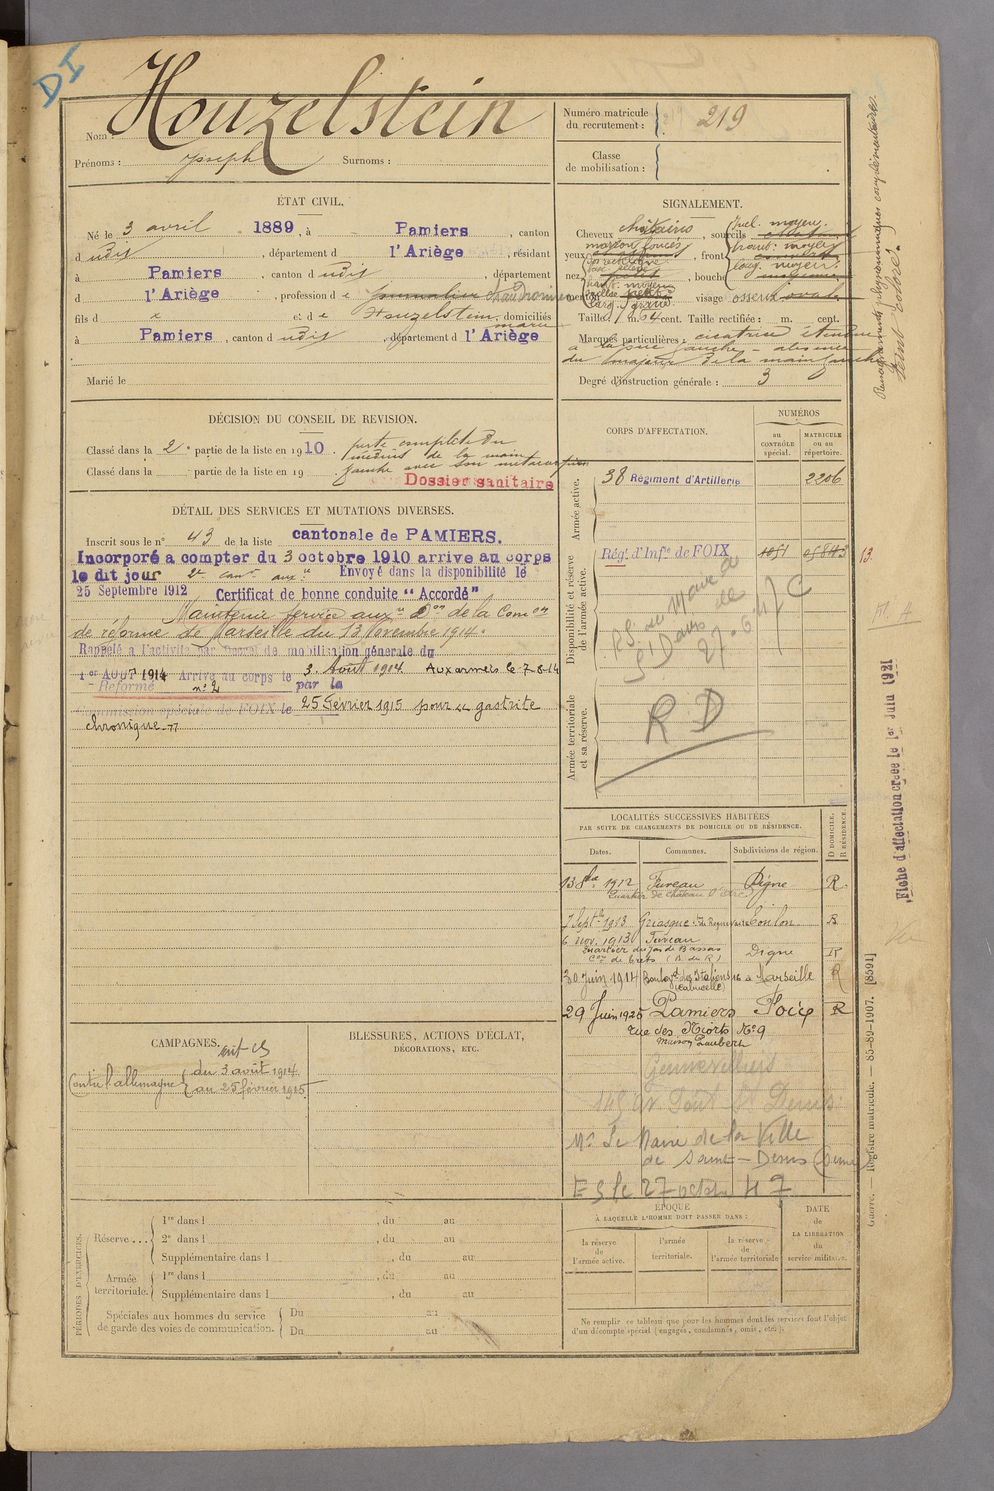 DI
Nom : Houzelstein
Prénoms : Joseph Surnoms :
Numéro matricule du recrutement : 219
Classe de mobilisation :
ÉTAT CIVIL.
Né le 3 avril 1889, à Pamiers, canton
d udit, département d l'Ariège, résidant
à Pamiers, canton d udit, département
d l'Ariège, profession d e journalier chaudronnier
fils d e et d e Houzelstein, domiciliés
à Pamiers, canton d udit, département d l'Ariège
Marié le
SIGNALEMENT.
Cheveux châtains, sourcils
yeux marron foncés, front
nez, bouche
menton visage osseux ovale
Taille : 1 m. 64 cent. Taille rectifiée : m. cent.
Marques particulières : cicatrice étendue
à la joue gauche - absence
du majeur de la main gauche
Degré d'instruction générale : 3
Renseignements physionomiques complémentaires.
teint coloré.
DÉCISION DU CONSEIL DE REVISION.
Classé dans la 2e partie de la liste en 1910. perte complète du
médius de la main
Classé dans la partie de la liste en 19 . gauche avec son métacarpien
Dossier sanitaire
DÉTAIL DES SERVICES ET MUTATIONS DIVERSES.
Inscrit sous le n° 43 de la liste cantonale de PAMIERS.
Incorporé a compter du 3 octobre 1910 arrive au corps
le dit jour 2e can. aux. Envoyé dans la disponibilité le
25 Septembre 1912 Certificat de bonne conduite "Accordé"
Maintenu service aux. Don de la Comon
de réforme de Marseille du 13 Novembre 1914.
Rappelé a l'activité par Décret de mobilisation générale du
1er AOUT 1914 Arrivé au corps le 3. Août 1914 Aux armées le 7-8-14
Réformé n° 2 par la
Commission spéciale de FOIX le 25 Février 1915 pour gastrite
chronique
CORPS D'AFFECTATION.
NUMÉROS
au CONTRÔLE spécial.
MATRICULE ou au répertoire.
Armée active.
38 Régiment d'Artillerie 2206
Disponibilité et réserve de l'armée active.
Rég.t d'Inf.ie de FOIX 1051 13
Mairie de
St Denis
27.6.47
C
Armée territoriale et sa réserve.
R D
Fiche d'affectation créée le 1er Juin 1921
LOCALITÉS SUCCESSIVES HABITÉES
PAR SUITE DE CHANGEMENTS DE DOMICILE OU DE RÉSIDENCE.
Dates. Communes. Subdivisions de région. D DOMICILE. R RÉSIDENCE.
13 8bre 1912 Fuveau Digne R
7 Septbre 1913 Gréasque Toulon R
6 nov. 1913 Fuveau
Quartier du Jas de Bassas
Con de Trets (B. du R) Digne R
30 Juin 1914 Marseille R
29 Juin 1925 Pamiers Foix R
rue des Morts No 9
Maison Laubert
Gennevilliers
145 av Pont St Denis
Mr Le Maire de la Ville
de Saint-Denis (Seine)
E S le 27 octbre 47
CAMPAGNES.
Contre l'allemagne du 3 août 1914
au 25 février 1915
BLESSURES, ACTIONS D'ÉCLAT,
DÉCORATIONS, ETC.
PÉRIODES D'EXERCICES.
Réserve....
1re dans l , du au
2e dans l , du au
Supplémentaire dans l , du au
Armée territoriale.
1re dans l , du au
Supplémentaire dans l , du au
Spéciales aux hommes du service de garde des voies de communication.
Du au
Du au
ÉPOQUE
À LAQUELLE L'HOMME DOIT PASSER DANS :
la réserve de l'armée active.
l'armée territoriale.
la réserve de l'armée territoriale
DATE de LA LIBÉRATION du service militaire.
Ne remplir ce tableau que pour les hommes dont les services font l'objet
d'un décompte spécial (engagés, condamnés, omis, etc.).
Guerre. — Registre matricule. — 85-89-1907. [8591]